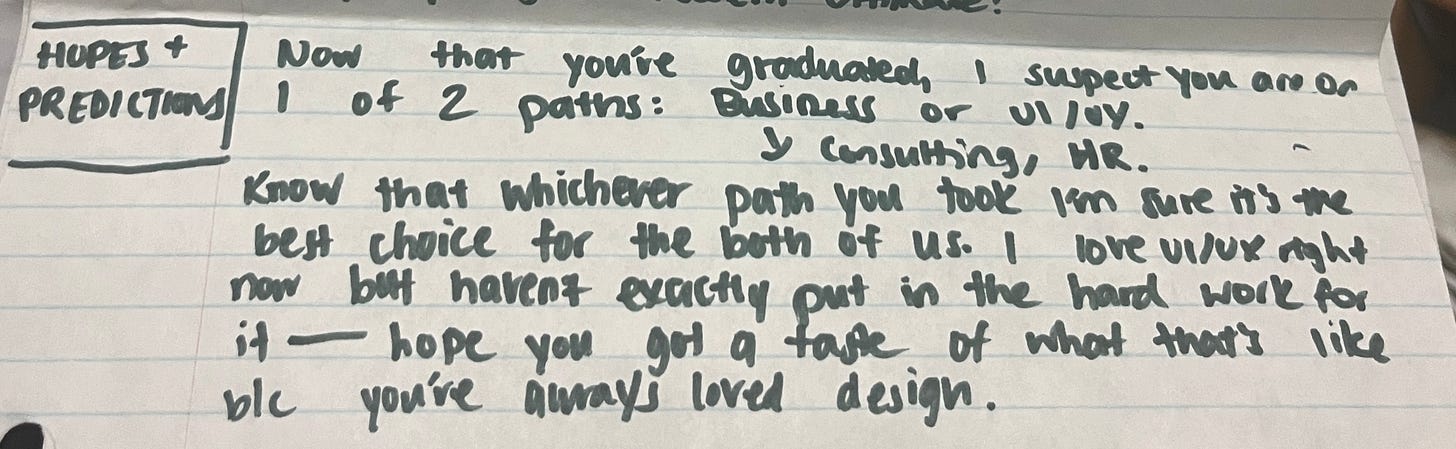 HOPES +
PREDICTIONS
Now that you've graduated, I suspect you are on
1 of 2 paths: Business or UI/UX.
↳ Consulting, HR.
Know that whichever path you took I'm sure it's the
best choice for the both of us. I love UI/UX right
now but haven't exactly put in the hard work for
it — hope you got a taste of what that's like
b/c you've always loved design.